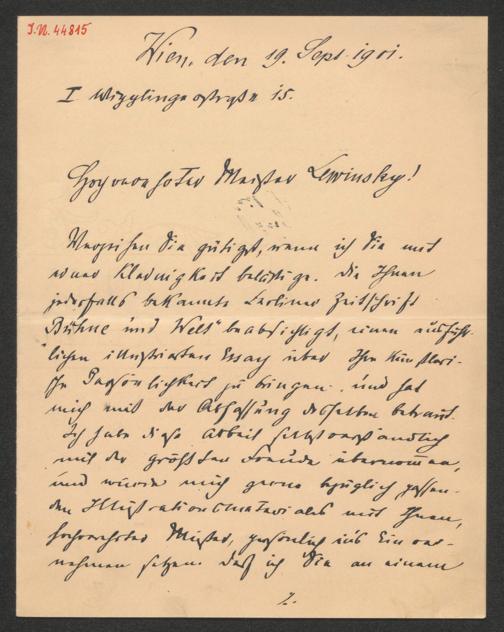 J.N. 44815
Wien, den 19. Sept. 1901.
I Wipplingerstraße 15.
Hochverehrter Meister Lewinsky!
Verzeihen Sie gütigst, wenn ich Sie mit
einer Kleinigkeit belästige. Die Ihnen
jedenfalls bekannte Berliner Zeitschrift
„Bühne und Welt" beabsichtigt, einen ausführ-
lichen illustrierten Essay über Ihre künstleri-
sche Persönlichkeit zu bringen und hat
mich mit der Abfassung desselben betraut.
Ich habe diese Arbeit selbstverständlich
mit der größten Freude übernommen,
und würde mich gerne bezüglich passen-
den Illustrationsmaterials mit Ihnen,
hochverehrter Meister, persönlich ins Einver-
nehmen setzen. Daß ich Sie an einem